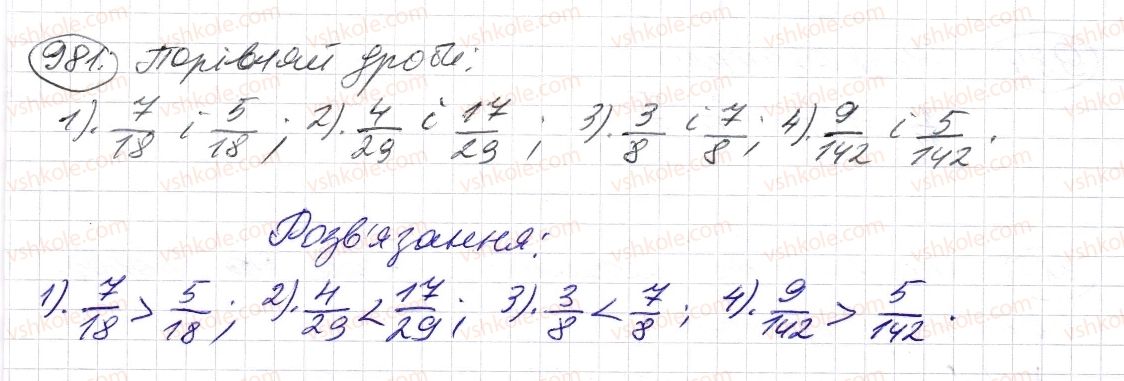 981. Порівняй дроби:
1). 7/18 і 5/18; 2). 4/29 і 17/29; 3). 3/8 і 7/8; 4). 9/142 і 5/142.
Розв'язання:
1). 7/18 > 5/18; 2). 4/29 < 17/29; 3). 3/8 < 7/8; 4). 9/142 > 5/142.